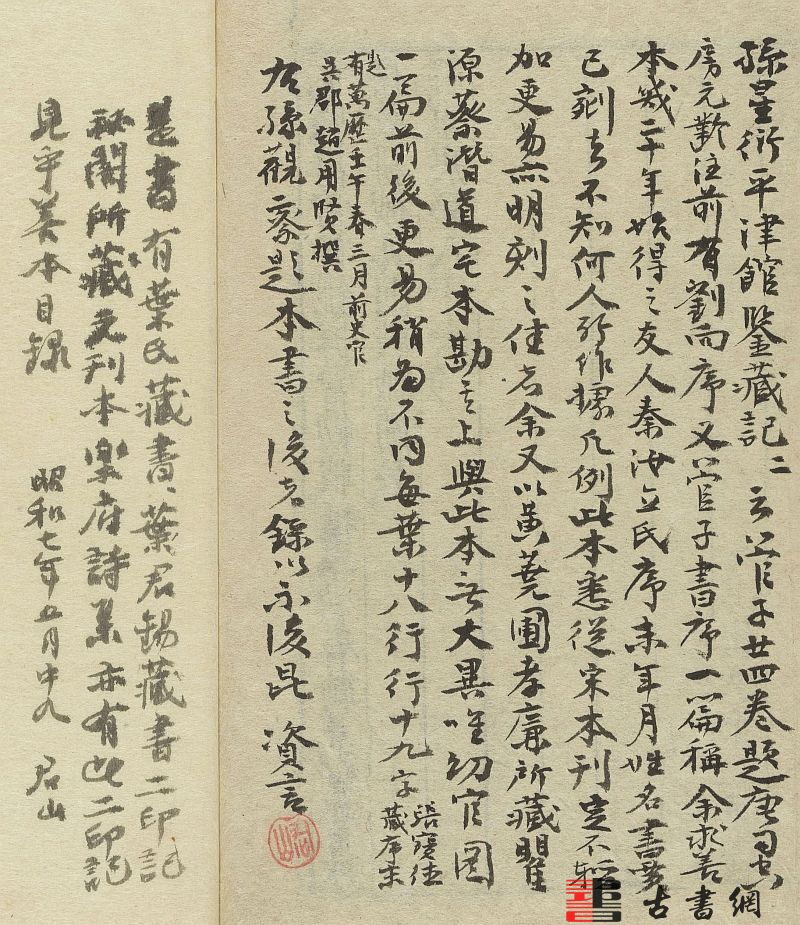 孫星衍平津館鑒藏記二云管子廿四卷題唐司空
房元齡注前有劉向序又管子書序一篇稱余求善書
本幾二十年始得之友人秦汝立氏序末年月姓名書賈
已剜去不知何人所作據凡例此本悉從宋本刊定不輒
加更易亦明刻之佳者余又以黃蕘圃孝廉所藏瞿
源蔡潛道宅本勘之上與此本無大異唯幼官圖
一篇前後更易稍為不同每葉十八行行十九字
張寶德藏序末
題有萬曆壬午春三月前史官
吳郡趙用賢撰
右孫觀察題本書之後者錄以示後昆 資言
是書有葉氏藏書、葉君錫藏書二印記
祕閣所藏元刊本樂府詩集亦有此二印記
見乎善本目錄
昭和七年五月中九 君山
古網